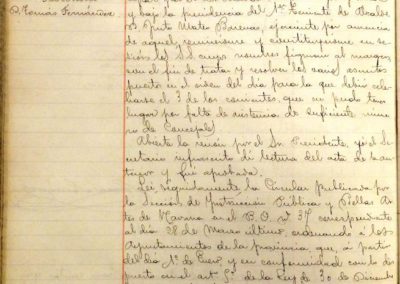 D. Tomás Fernández
y bajo la presidencia del 1er Teniente de Alcalde
D. Justo Mateo Barena, ejerciente por ausencia
de aquel, reuniéronse y constituyéronse en se
sión los S.S. cuyos nombres figuran al margen
con el fin de tratar y resolver los asuntos
puestos en el orden del día para la que debió cele
brarse el 3 de los corrientes, que no pudo tener
lugar por falta de asistencia de suficiente núme
ro de Concejales.
Abierta la sesión por el Sr. Presidente, yo el Se
cretario refrendo dí lectura del acta de la an
terior y fué aprobada.
Leí seguidamente la Circular publicada por
la Sección de Instrucción Pública y Bellas Ar
tes de Navarra en el B.O. nº 37 correspondiente
al día 28 de Marzo último, ordenando á los
Ayuntamientos de la provincia que, á partir
del día 1º de Enero y en conformidad con lo dis
puesto en el artº 5º de la Ley de 30 de Diciembre